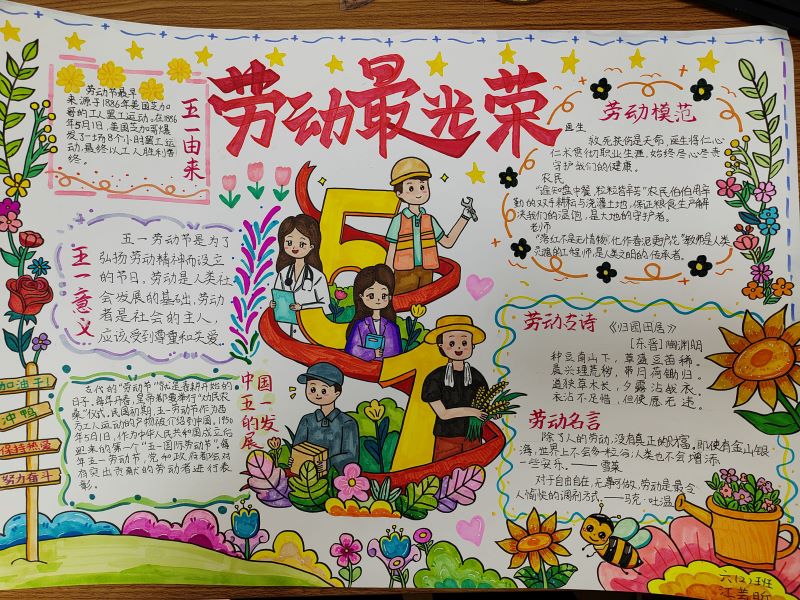 劳动最光荣
五一由来
劳动节最早
来源于1886年美国芝加
哥的工人罢工运动。在1886
年5月1日,美国芝加哥爆
发了一场8个小时罢工运
动,最终以工人胜利告
终。
五一意义
五一劳动节是为了
弘扬劳动精神而设立
的节日,劳动是人类社
会发展的基础,劳动
者是社会的主人,
应该受到尊重和关爱。
中国五一的发展
古代的“劳动节”就是春耕开始的
日子。每年开春,皇帝都要奉行“劝民农
桑”仪式。民国初期,五一劳动节作为西
方工人运动的产物被介绍到中国。1950
年5月1日,作为中华人民共和国成立后
迎来的第一个“五一国际劳动节”。每
年五一劳动节,党和政府都会对
有突出贡献的劳动者进行表
彰。
加油干!
冲鸭
保持热爱
努力奋斗
51
劳动模范
医生
救死扶伤是天命,医生将仁心
仁术贯彻职业生涯,始终尽心尽责
守护我们的健康。
农民
“谁知盘中餐,粒粒皆辛苦”农民伯伯用辛
勤的双手耕耘与浇灌土地,保证粮食生产解
决我们的温饱,是大地的守护者。
老师
“落红不是无情物,化作春泥更护花。”教师是人类
灵魂的工程师,是人类文明的传承者。
劳动古诗 《归园田居》
[东晋]陶渊明
种豆南山下,草盛豆苗稀。
晨兴理荒秽,带月荷锄归。
道狭草木长,夕露沾我衣。
衣沾不足惜,但使愿无违。
劳动名言
除了人的劳动,没有真正的财富。即使有金山银
海,世界上不会多一粒谷,人类也不会增添
一些安乐。——雪莱
对于自由自在,无事可做,劳动是最令
人愉快的调剂方式。——马克·吐温
六(2)班